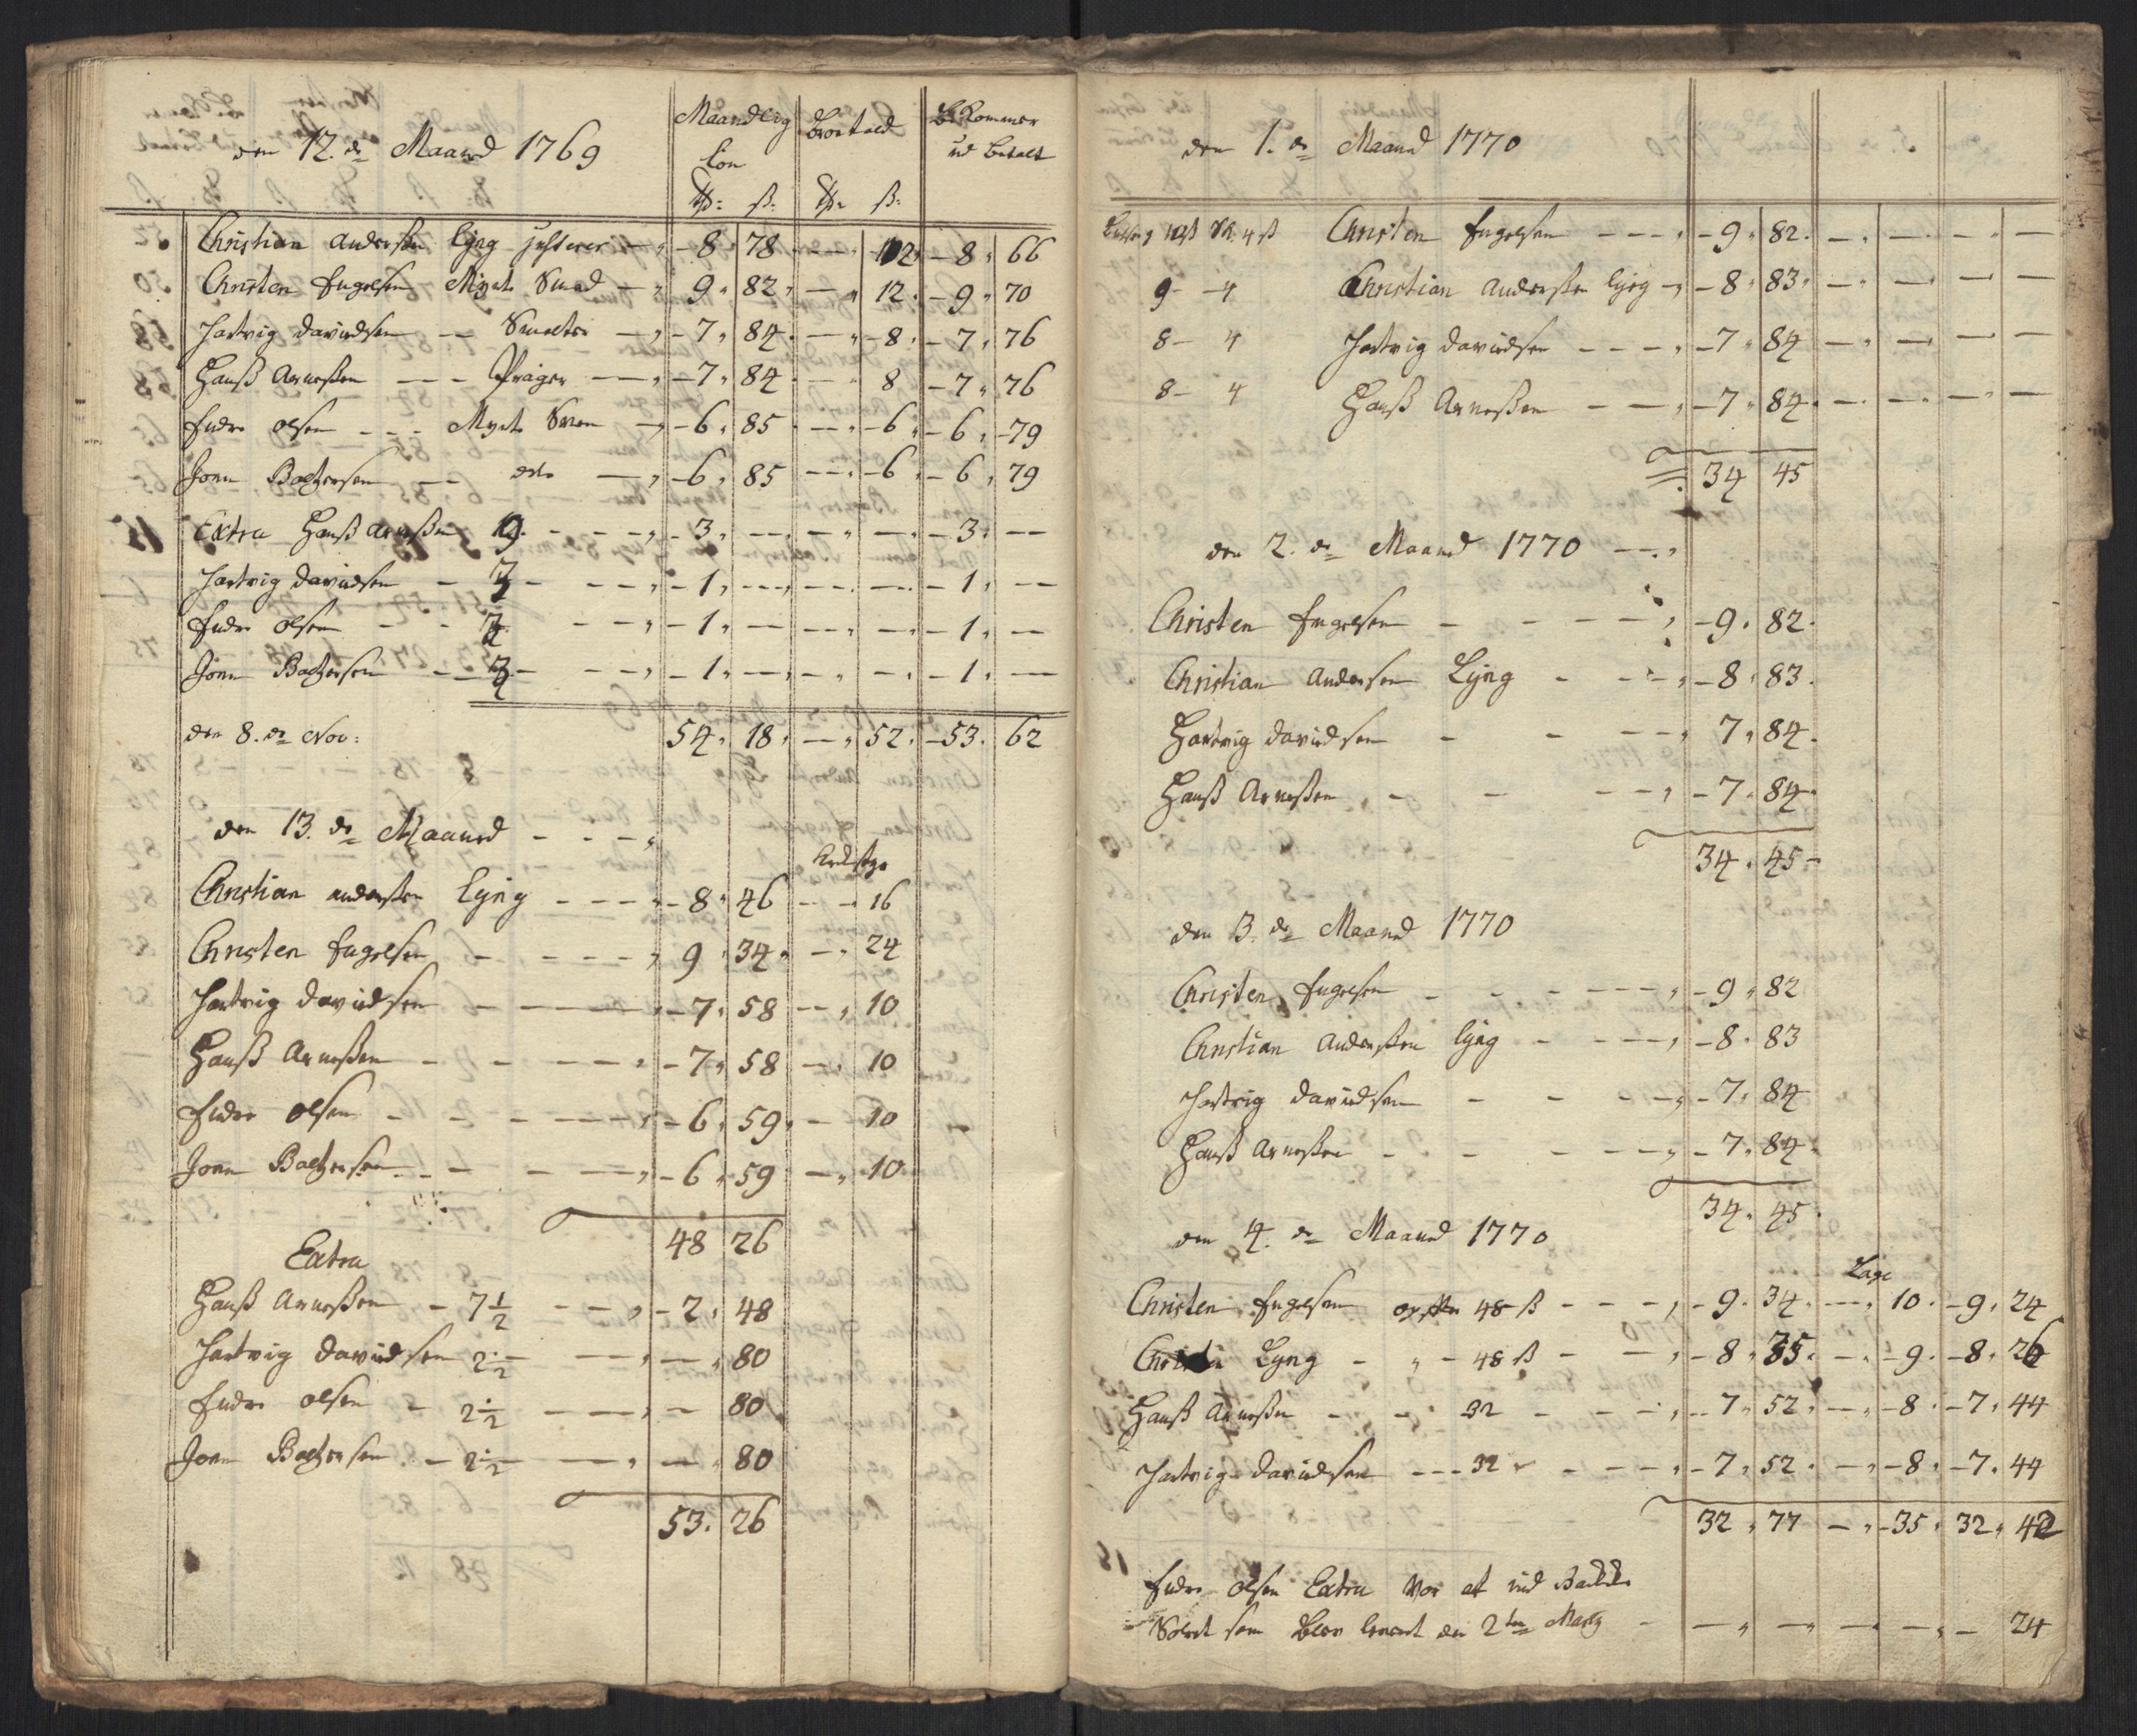 den 12. de Maaned 1769 Maandlig Lon Brostold Bekommer ud betalt
Rd: ß: Rd: ß:
Christian Anderßen Lyng Justerer 8 78 12 8 66
Christen Engelsen Mynt Smed 9 82 12 9 70
Hartvig Davidsen Smelter 7 84 8 7 76
Hanß Arneßen Präger 7 84 8 7 76
Endre Olsen Mynt Sven 6 85 6 6 79
Jonn Baltzersen dito 6 85 6 6 79
Extra Hanß Arneßen 9 3 3
Hartvig Davidsen 3 1 1
Endre Olsen 3 1 1
Jonn Baltzersen 3 1 1
den 8. de Nov: 54 18 52 53 62
den 13. de Maaned
Christian Anderßen Lyng 8 46 16
Christen Engelsen 9 34 24
Hartvig Davidsen 7 58 10
Hanß Arneßen 7 58 10
Endre Olsen 6 59 10
Jonn Baltzersen 6 59 10
48 26
Extra
Hanß Arneßen 7 1/2 2 48
Hartvig Davidsen 2 1/2 80
Endre Olsen 2 1/2 80
Jonn Baltzersen 2 1/2 80
53 26
den 1. de Maaned 1770
10ß 4ß Christen Engelsen 9 82
9 4 Christian Anderßen Lyng 8 83
8 4 Hartvig Davidsen 7 84
8 4 Hanß Arneßen 7 84
34 45
den 2. de Maaned 1770
Christen Engelsen 9 82
Christian Andersen Lyng 8 83
Hartvig Davidsen 7 84
Hanß Arneßen 7 84
34 45
den 3. de Maaned 1770
Christen Engelsen 9 82
Christian Anderßen Lyng 8 83
Hartvig Davidsen 7 84
Hanß Arneßen 7 84
34 45
den 4. de Maaned 1770
Lage
Christen Engelsen 48 ß 9 34 10 9 24
Lyng 48 ß 8 35 9 8 26
Hanß Arneßen 32 7 52 8 7 44
Hartvig Davidsen 32 7 52 8 7 44
32 77 35 32 42
Endre Olsen Extra vor at
Solvet som blev den 2ten Marty 24